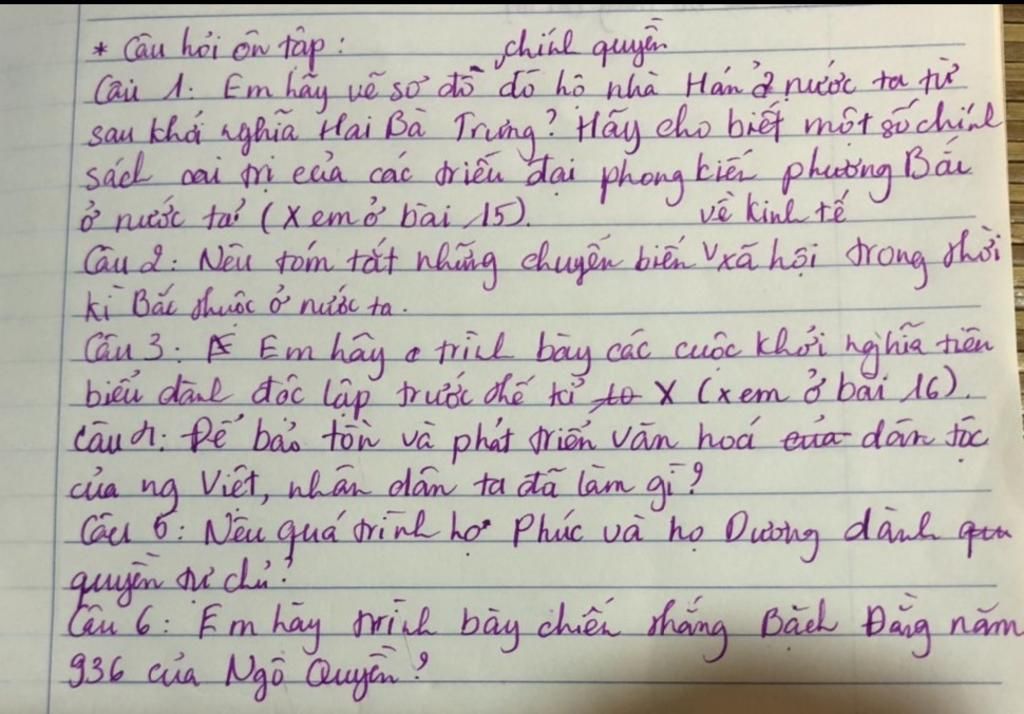 * Câu hỏi ôn tập: chính quyền
Câu 1: Em hãy vẽ sơ đồ đô hộ nhà Hán ở nước ta từ
sau khởi nghĩa Hai Bà Trưng? Hãy cho biết một số chính
sách cai trị của các triều đại phong kiến phương Bắc
ở nước ta? (Xem ở bài 15). về kinh tế
Câu 2: Nêu tóm tắt những chuyển biến v xã hội trong thời
kì Bắc thuộc ở nước ta.
Câu 3: Em hãy trình bày các cuộc khởi nghĩa tiên
biểu dành độc lập trước thế kỉ X (xem ở bài 16).
Câu 4: Để bảo tồn và phát triển văn hoá của dân tộc
của ng Việt, nhân dân ta đã làm gì?
Câu 5: Nêu quá trình họ Phúc và họ Dương dành
quyền tự chủ?
Câu 6: Em hãy trình bày chiến thắng Bạch Đằng năm
936 của Ngô Quyền?